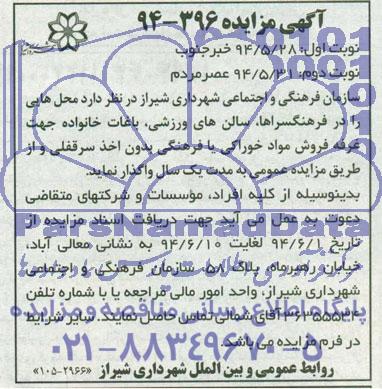 آگهی مزایده ۳۹۶-۹۴
نوبت اول: ۹۴/۵/۲۸ خبرجنوب
نوبت دوم: ۹۴/۵/۳۱ عصرمردم
سازمان فرهنگی و اجتماعی شهرداری شیراز در نظر دارد محل هایی
را در فرهنگسراها، سالن های ورزشی، باغات خانواده جهت
غرفه فروش مواد خوراکی یا فرهنگی بدون اخذ سرقفلی و از
طریق مزایده عمومی به مدت یک سال واگذار نماید.
بدینوسیله از کلیه افراد، مؤسسات و شرکتهای متقاضی
دعوت به عمل می آید جهت دریافت اسناد مزایده از
تاریخ ۹۴/۶/۱ لغایت ۹۴/۶/۱۰ به نشانی معالی آباد،
خیابان رهبر، پلاک ۵۸، سازمان فرهنگی و اجتماعی
شهرداری شیراز، واحد امور مالی مراجعه یا با شماره تلفن
آقای شمالی تماس حاصل نمایند. سایر شرایط
در فرم مزایده می باشد.
روابط عمومی و بین الملل شهرداری شیراز «۲۹۶۶-۱۰۵»
ParsNamadData
پایگاه اطلاع رسانی مناقصه و مزایده
۰۲۱-۸۸۳۴۹۶۷۰-۵